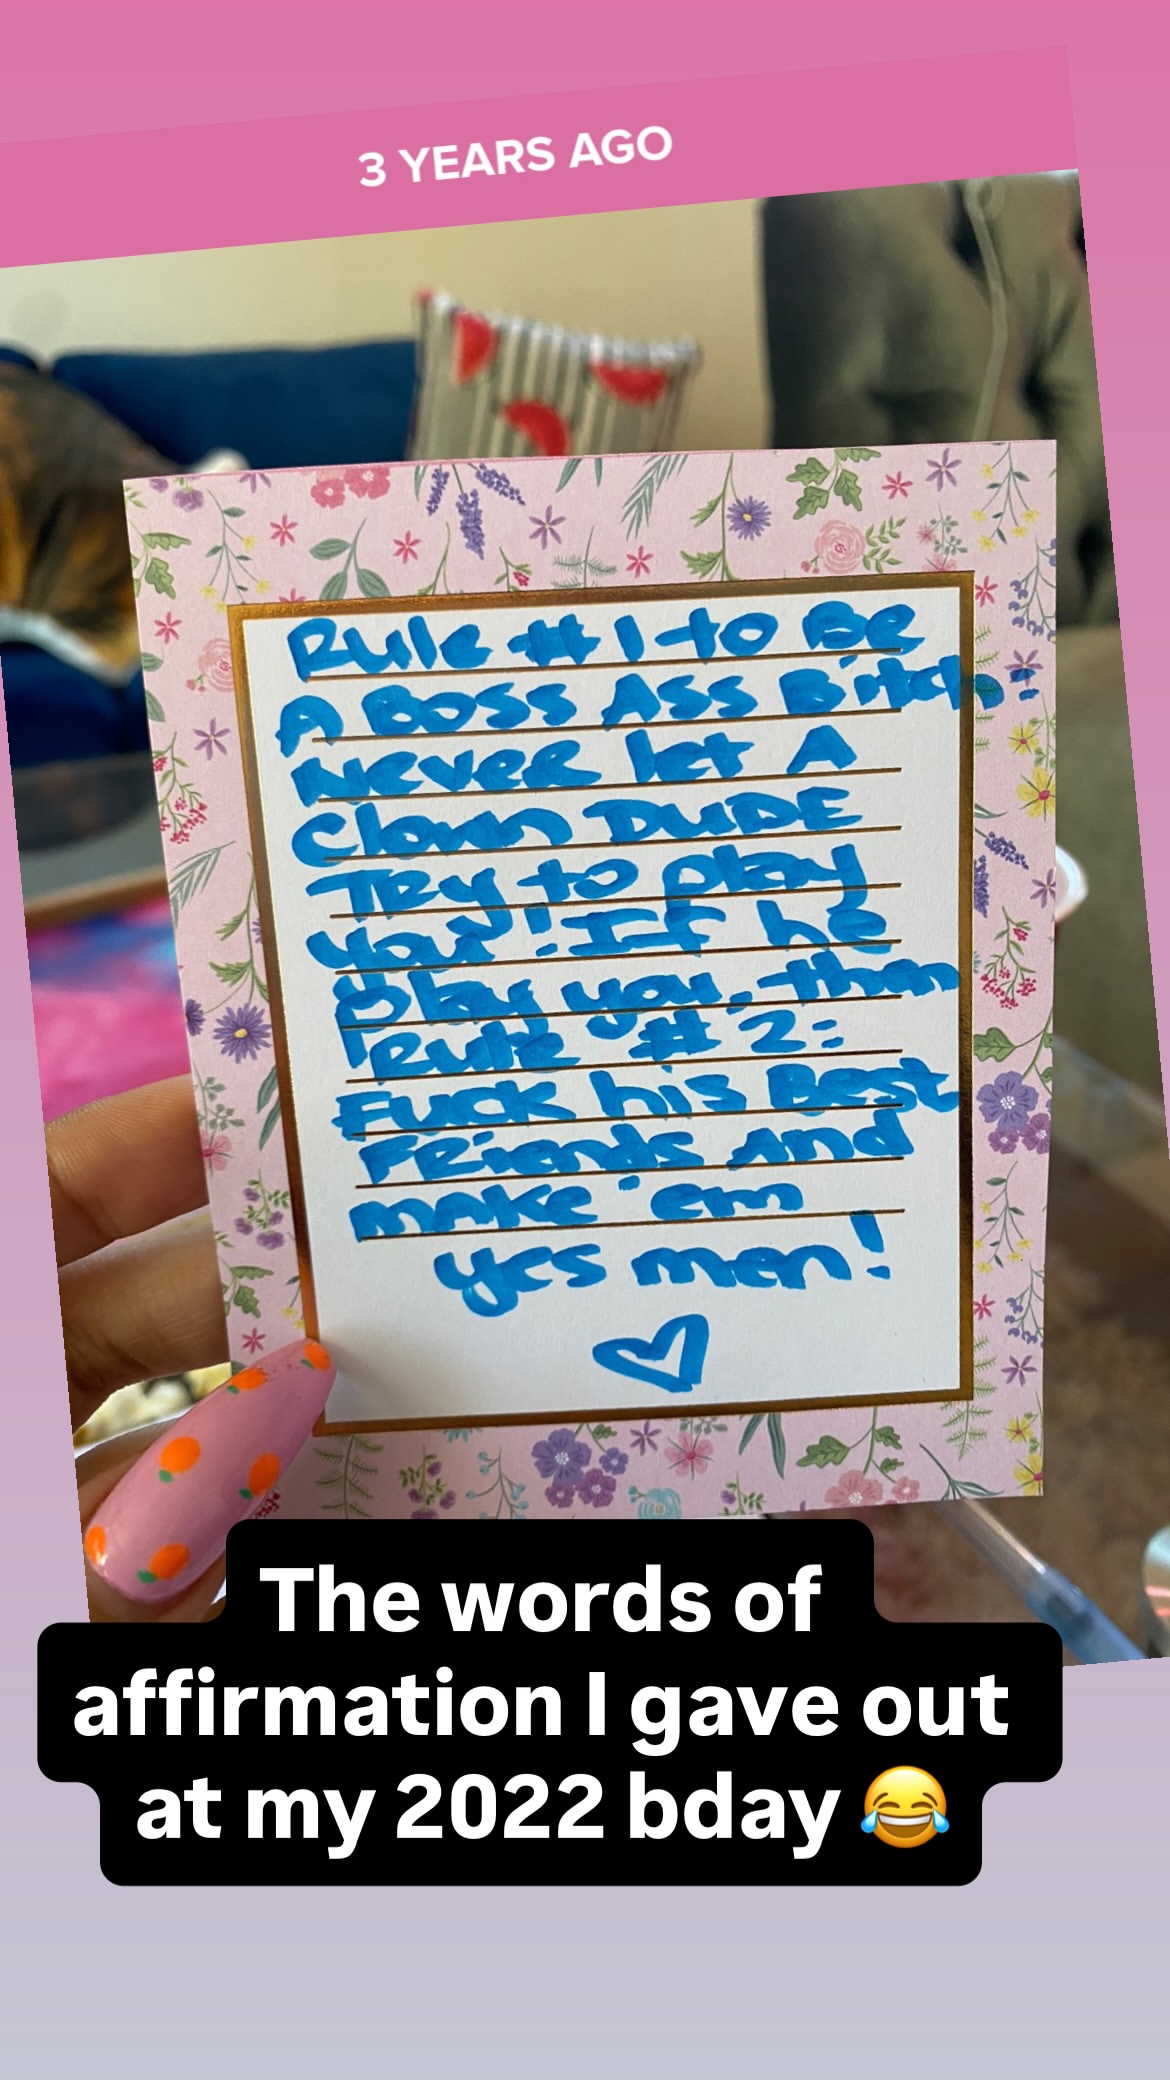 3 YEARS AGO
Rule #1 to Be
A Boss Ass Bitch:
Never let A
Clown DUDE
Try to play
you! If he
play you, then
Rule #2:
Fuck his Best
Friends and
make 'em
yes men!
The words of
affirmation I gave out
at my 2022 bday 😂